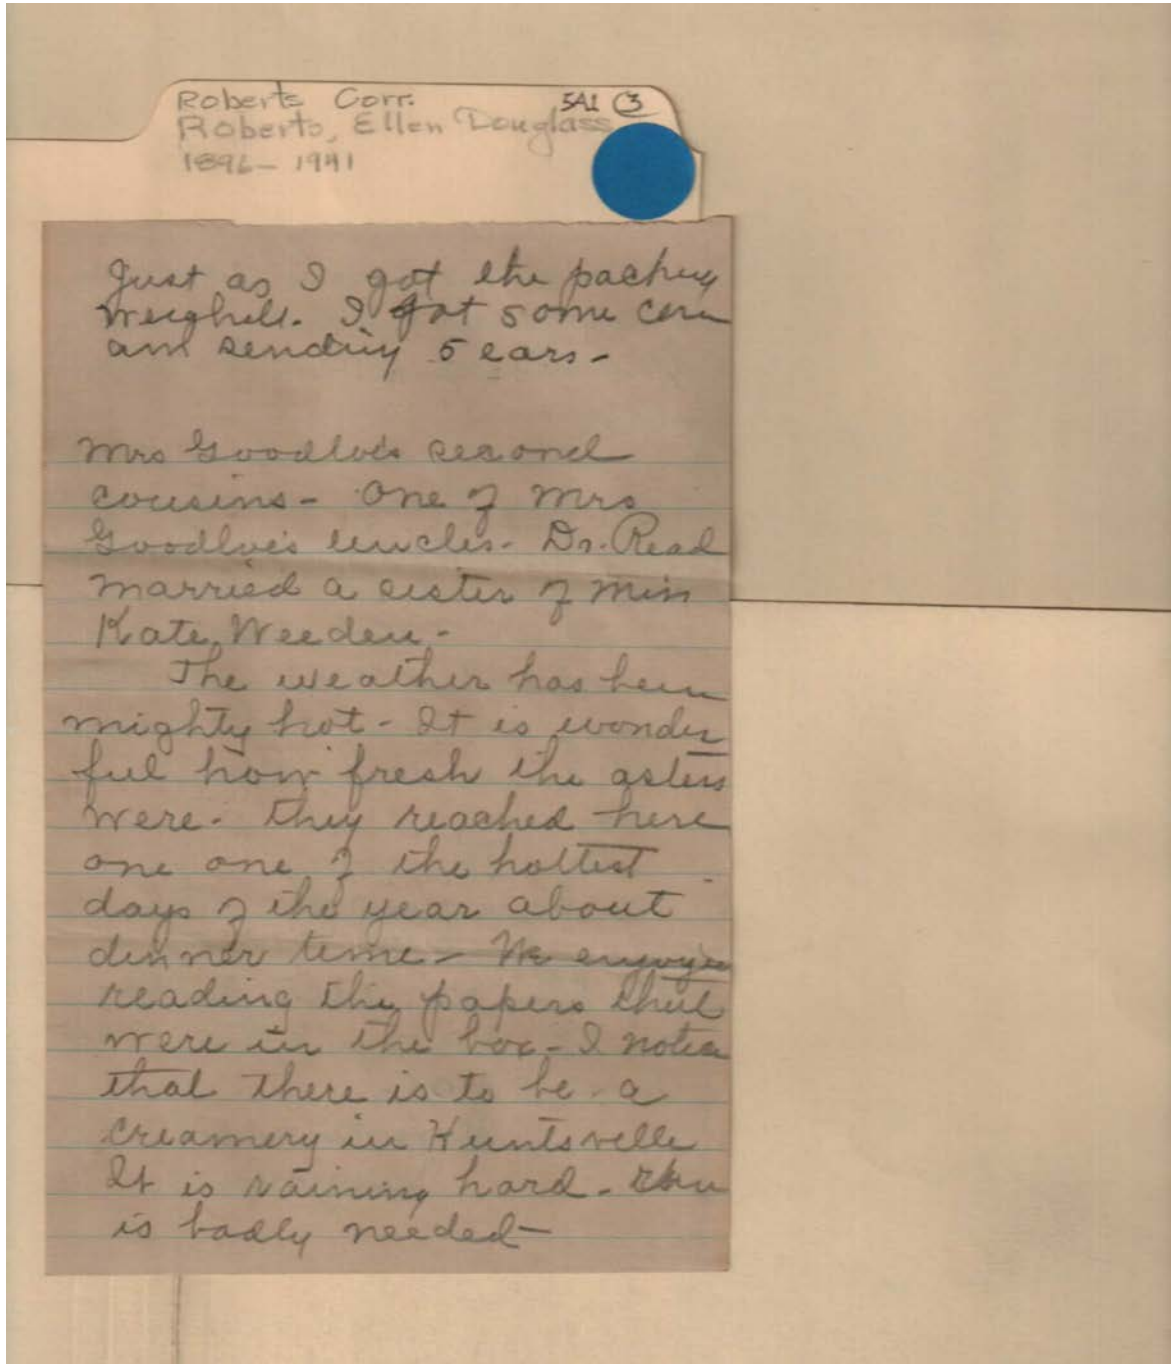 Roberts Corr. 5A1 (3)
Roberts, Ellen Douglass
1896-1941
Just as I got the
weighed. I got some corn
am sending 5 ears-
Mrs Goodloe's second
cousins- One of Mrs
Goodloe's uncles- Dr. Read
married a sister of Miss
Kate Weeden-
The weather has been
mighty hot- It is wonder
ful how fresh the asters
were. They reached here
one one of the hottest
days of the year about
dinner time- We enjoyed
reading the papers that
were in the box- I notice
that there is to be a
creamery in Huntsville
It is raining hard-
is badly needed-